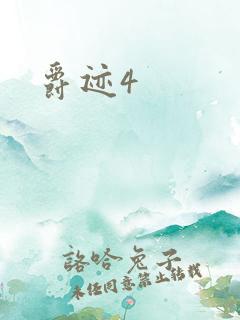 爵迹4
詻哈兔子
未经同意禁止转载